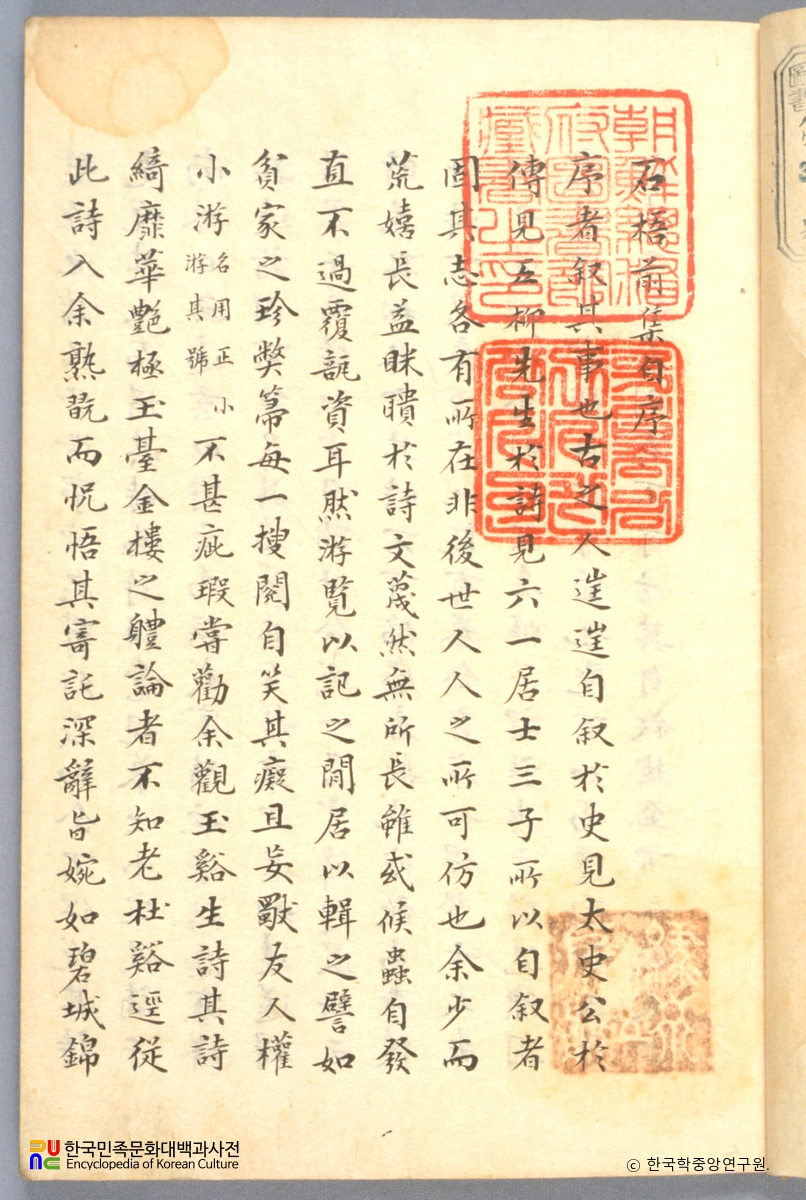 石梧前集自序
序者叙其事也古之人逞逞自叙於史見太史公於
傳見五柳先生於詩見六一居士三子所以自叙者
固其志各有所在非後世人人之所可仿也余少而
荒嬉長益眯聵於詩文蔑然無所長雖或候蟲自發
直不過覆瓿資耳然游覧以記之閒居以輯之譬如
貧家之珍弊箒每一搜閱自笑其癡且妄獸友人權
小游名用正小游其號不甚疵瑕嘗勸余觀玉谿生詩其詩
綺靡華艶極玉臺金樓之軆論者不知老杜谿逕從
此詩入余熟翫而怳悟其寄託深辭旨婉如碧城錦
朝鮮總督府圖書之印
한국민족문화대백과사전
Encyclopedia of Korean Culture
ⓒ 한국학중앙연구원.